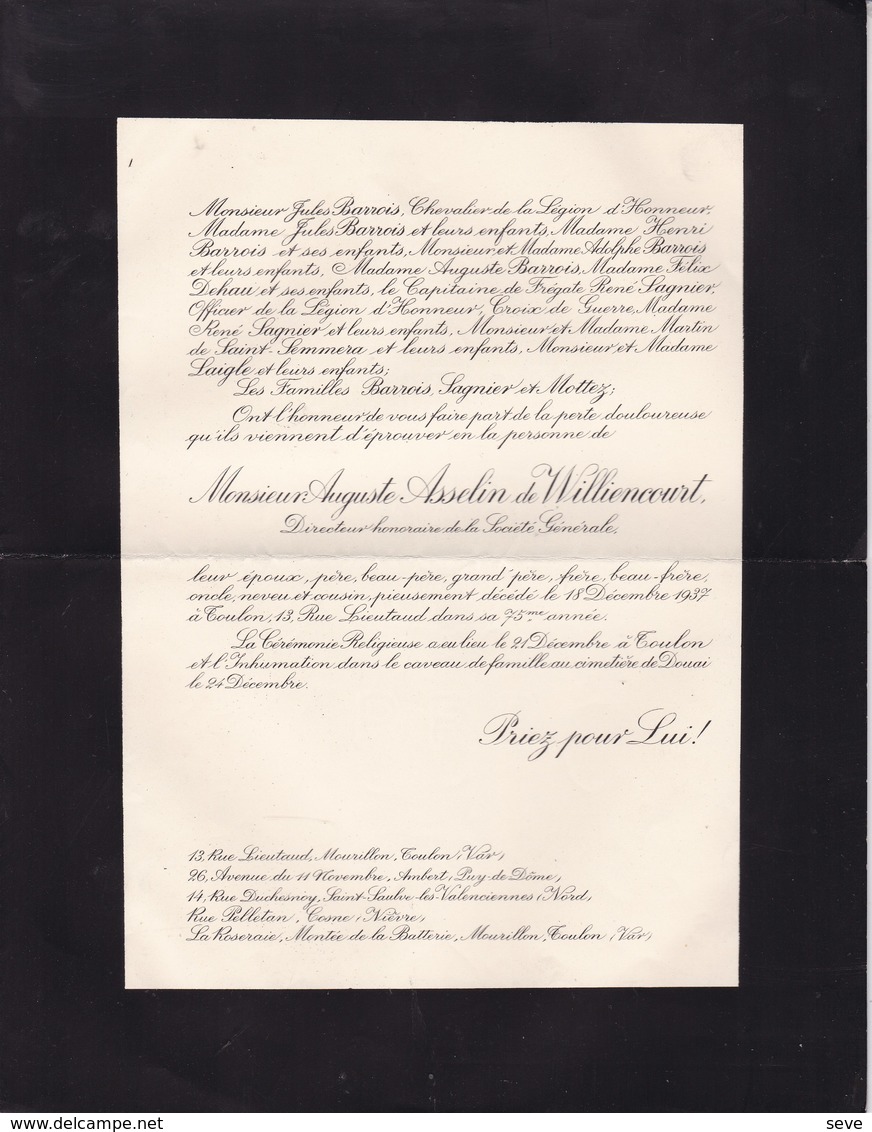 Monsieur Jules Barrois, Chevalier de la Légion d'Honneur,
Madame Jules Barrois et leurs enfants, Madame Henri
Barrois et ses enfants, Monsieur et Madame Adolphe Barrois
et leurs enfants, Madame Auguste Barrois, Madame Félix
Dehau et ses enfants, le Capitaine de Frégate René Sagnier,
Officier de la Légion d'Honneur, Croix de Guerre, Madame
René Sagnier et leurs enfants, Monsieur et Madame Martin
de Saint-Semmera et leurs enfants, Monsieur et Madame
Laigle et leurs enfants;
Les Familles Barrois, Sagnier et Mottez;
Ont l'honneur de vous faire part de la perte douloureuse
qu'ils viennent d'éprouver en la personne de
Monsieur Auguste Asselin de Williencourt,
Directeur honoraire de la Société Générale,
leur époux, père, beau-père, grand'père, frère, beau-frère,
oncle, neveu et cousin, pieusement décédé le 18 Décembre 1937
à Toulon, 13, Rue Lieutaud dans sa 75me année.
La Cérémonie Religieuse a eu lieu le 21 Décembre à Toulon
et l'Inhumation dans le caveau de famille au cimetière de Douai
le 24 Décembre.
Priez pour Lui!
13, Rue Lieutaud, Mourillon, Toulon (Var)
26, Avenue du 11 Novembre, Ambert, (Puy-de-Dôme)
14, Rue Duchesnoy, Saint-Saulve-les-Valenciennes (Nord)
Rue Pelletan, Cosne (Nièvre)
La Roseraie, Montée de la Batterie, Mourillon, Toulon (Var)
seve